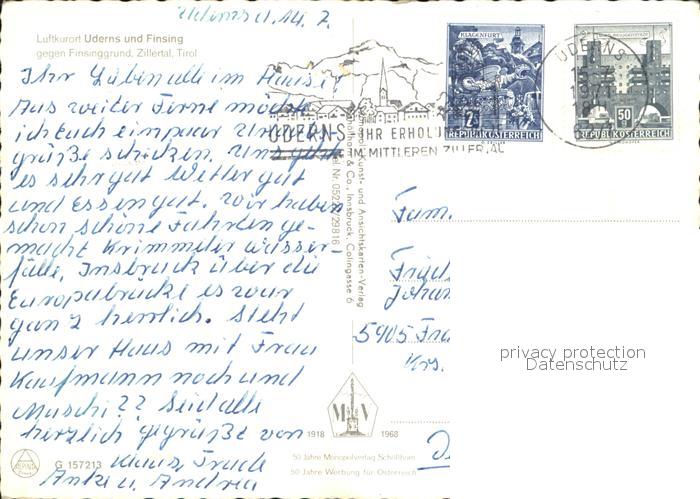 Udens d. 14. 7.
Luftkurort Uderns und Finsing
gegen Finsinggrund, Zillertal, Tirol
Ihr Lieben alle im Hause!
Aus weiter Ferne möchte
ich Euch ein paar Urlaubs
grüße schicken. Uns geht
es sehr gut Wetter gut
und Essen gut. Wir haben
schon schöne Fahrten ge-
macht Krimmler Wasser-
fälle, Insbruck über die
Europabrücke es war
ganz herrlich. Steht
unser Haus mit Frau
Kaufmann noch und
Muschi?? Seid alle
herzlich gegrüßt von
Klaus, Trude
Anke u. Andrea
G 157213
KLAGENFURT
2S
REPUBLIK ÖSTERREICH
50
REPUBLIK ÖSTERREICH
UDERNS
1971
UDERNS IHR ERHOLU
IM MITTLEREN ZILLERTAL
Kunst- und Ansichtskarten-Verlag
& Co., Innsbruck, Colingasse 6
Nr. 05222/29816
Fam.
Fried
Johan
5905 Fre
Krs.
privacy protection
Datenschutz
M V
1918 1968
50 Jahre Monopolverlag Schöllhorn
50 Jahre Werbung für Österreich